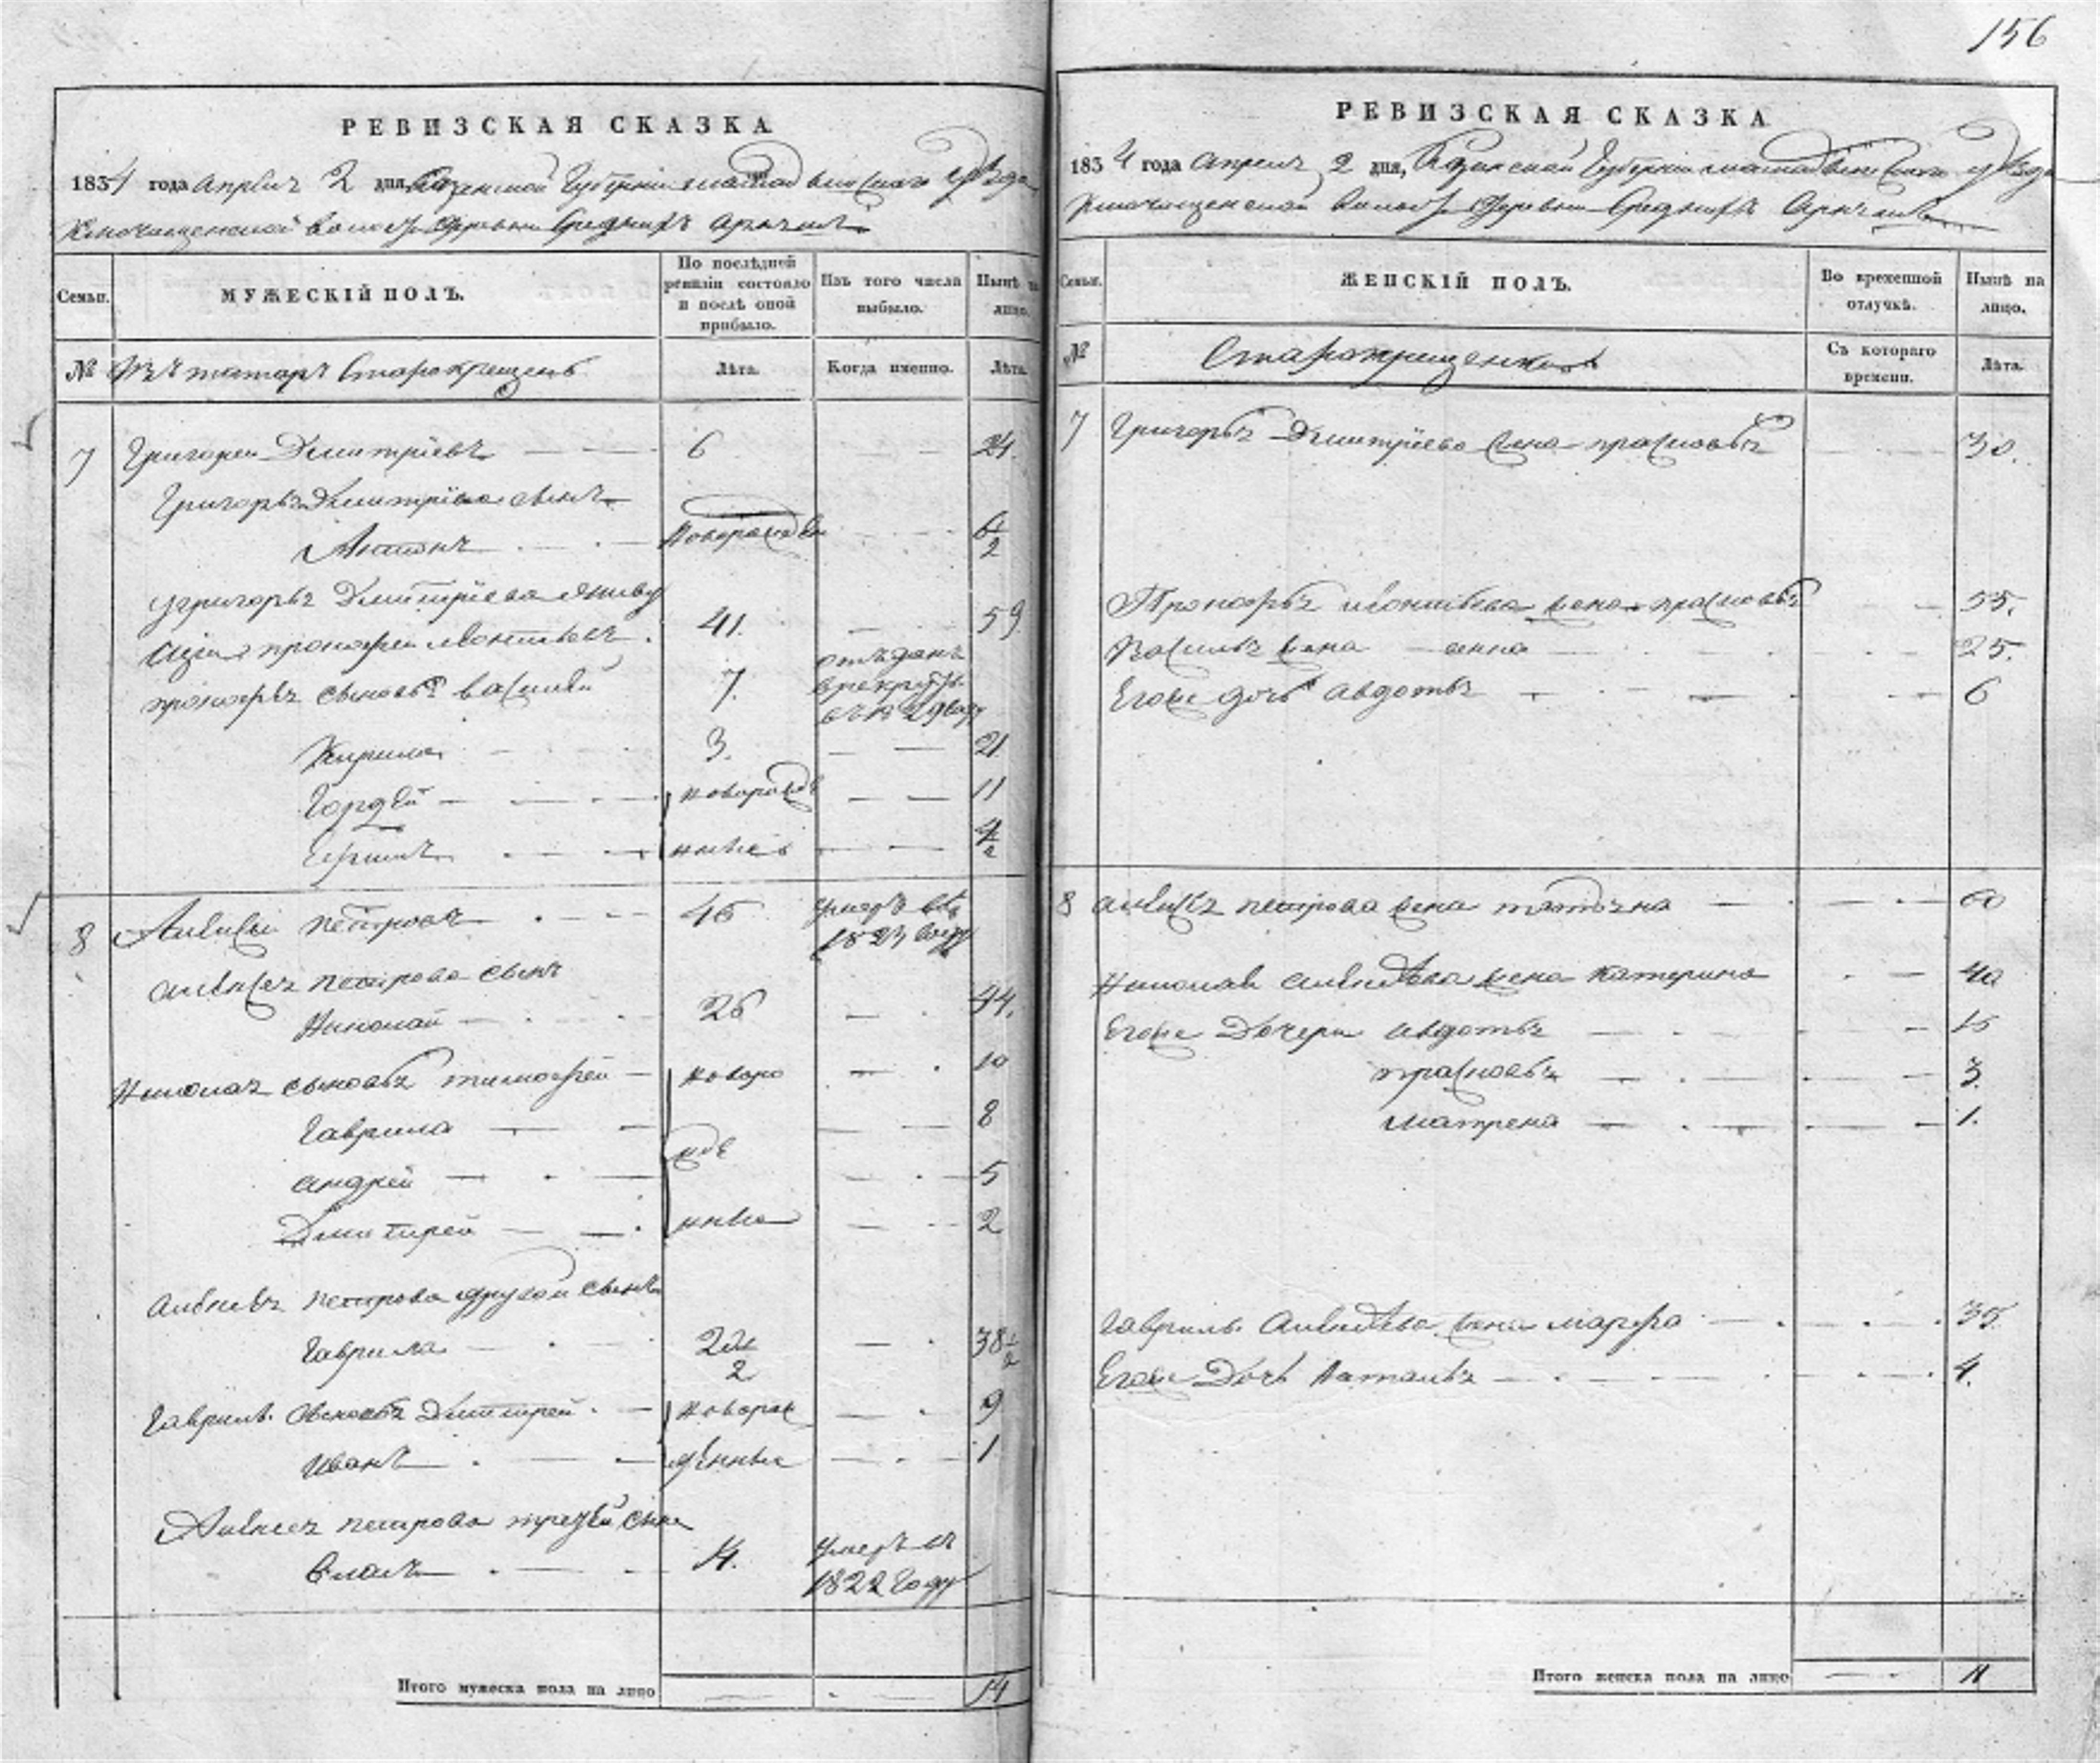 156
РЕВИЗСКАЯ СКАЗКА
1834 года апреля 2 дня, Казанской Губернии уезда
волости деревни Среднихъ
Семьи.
МУЖЕСКІЙ ПОЛЪ.
По послѣдней ревизіи состояло и послѣ оной прибыло.
Изъ того числа выбыло.
Нынѣ на лицо.
№
Изъ татаръ Старокрещенъ
Лѣта.
Когда именно.
Лѣта.
7 Григорей Дмитріевъ 6 24.
Григорья Дмитріева сынъ
Антонъ новорожден 6 1/2
у Григорья Дмитріева
Прокофей Леонтьевъ 41. 59
Прокофья сыновья Василей 7. отъданъ в рекруты въ 1829 году
Кирила 3. 21
Гордей новорожд 11
4 1/2
8 Алексей Петровъ 46 умеръ въ 1823 году
Алексея Петрова сынъ
Николай 26 44.
Николая сыновья Тимофей новоро 10
Гаврила 8
Андрей жде 5
Дмитрей нные 2
Алексея Петрова другой сынъ
Гаврила 22 1/2 38 1/2
Гаврилы сыновья Дмитрей новорож 9
Иванъ денные 1
Алексея Петрова третей сынъ
Власъ 14. умеръ въ 1822 году
Итого мужеска пола на лицо 14
РЕВИЗСКАЯ СКАЗКА
1834 года апреля 2 дня, Казанской Губернии уезда
волости деревни Среднихъ
Семьи.
ЖЕНСКІЙ ПОЛЪ.
Во временной отлучкѣ.
Нынѣ на лицо.
№
Старокрещенных
Съ котораго времени.
Лѣта.
7 Григорья Дмитріева жена Прасковья 30.
Прокофья Леонтьева жена Прасковья 55.
Василья жена Анна 25.
Егоже дочь Авдотья 6
8 Алексея Петрова жена Татьяна 60
Николая Алексеева жена Катерина 40
Егоже дочери Авдотья 15
Прасковья 3.
Матрена 1.
Гаврилы Алексеева жена Марфа 35
Егоже дочь Наталья 4.
Итого женска пола на лицо 11